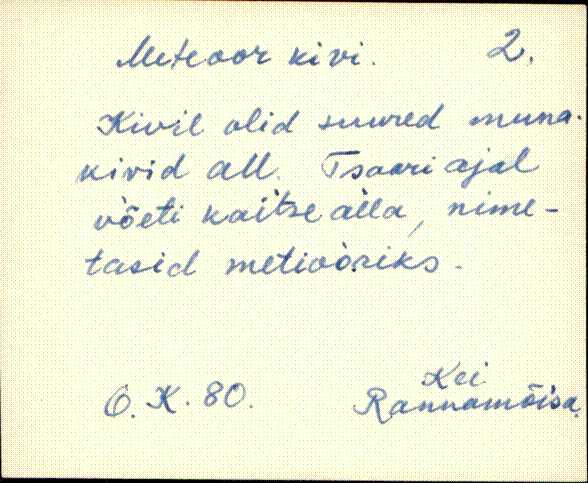 Meteoor kivi. 2.
Kivil olid suured muna-
kivid all. Tsaari ajal
võeti kaitse alla, nime-
tasid metiooriks.
O.K. 80. Kei
Rannamõisa.